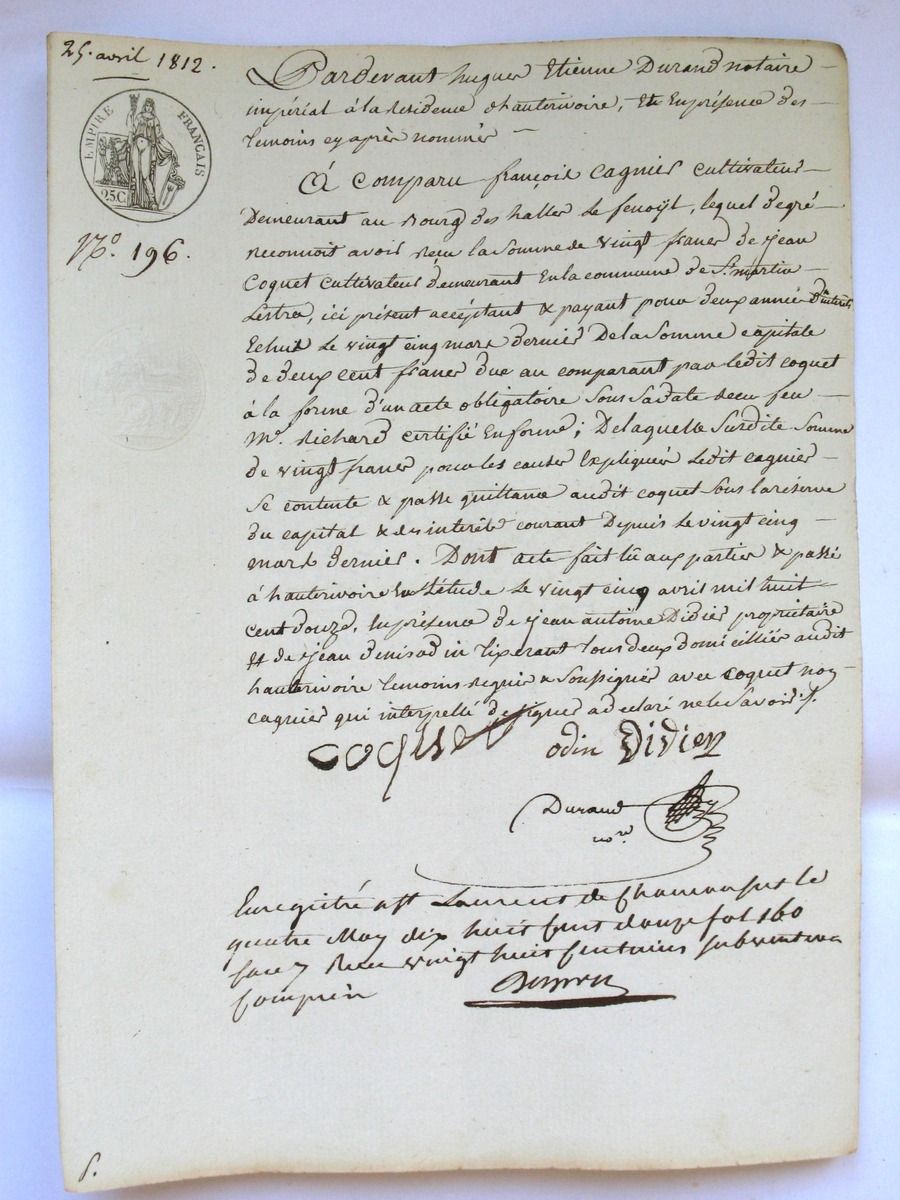 25. avril 1812.
EMPIRE FRANÇAIS
25C
N.º 196.
Pardevant hugues Etienne Durand notaire
impérial à la Residence d'hauterivoire, Et En présence des
temoins cy après nommés
A Comparu françois Cagnier Cultivateur
Demeurant au Bourg des halles le fenoÿl, lequel de gré
reconnoit avoir Recu la Somme de Vingt francs de Jean
Coquet Cultivateur demeurant En la commune de St. martin
Lestra, ici présent accéptant & payant pour Deux années D'intérêts
Echus Le vingt cinq mars dernier De la Somme capitale
de deux cent francs due au comparant par ledit coquet
à la forme d'un acte obligatoire Sous Sa date recu feu
Mᵉ. Richard certifié En forme; De laquelle Surdite Somme
de vingt francs pour les causes Expliquées Ledit cagnier
Se contente & passe quittance audit coquet Sous la réserve
du capital & des interêts courant Depuis Le vingt cinq
mars dernier. Dont acte fait lû aux parties & passé
à hauterivoire En L'étude Le vingt cinq avril mil huit
cent douze, En présence de Jean antoine Didier propriétaire
Et de Jean denis odin tixerant tous deux domicilliés audit
hauterivoire temoins requis & Soussignés avec Coquet non
cagnier qui interpellé de signer a declaré ne le Savoir ./.
coquet odin Didier
Durand
nore.
Enregistré a St Laurent de Chamousset le
quatre May dix huit Cent douze fol 160
Case 7 Reçu vingt huit Centimes subvention
Comprise